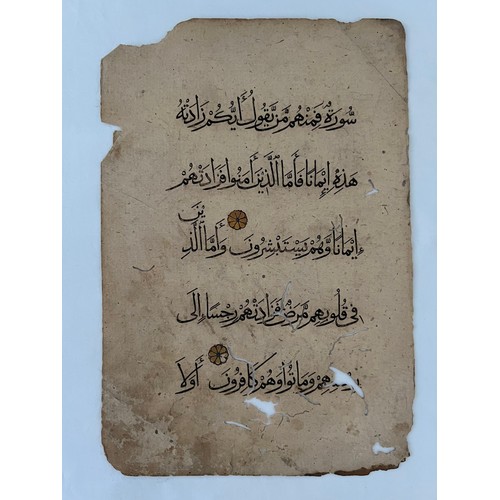 سُورَةٌ فَمِنْهُم مَّن يَقُولُ أَيُّكُمْ زَادَتْهُ
هَذِهِ إِيمَانًا فَأَمَّا الَّذِينَ آمَنُوا فَزَادَتْهُمْ
إِيمَانًا وَهُمْ يَسْتَبْشِرُونَ وَأَمَّا الَّذِينَ
فِي قُلُوبِهِم مَّرَضٌ فَزَادَتْهُمْ رِجْسًا إِلَى
وَمَاتُوا وَهُمْ كَافِرُونَ أَوَلَا